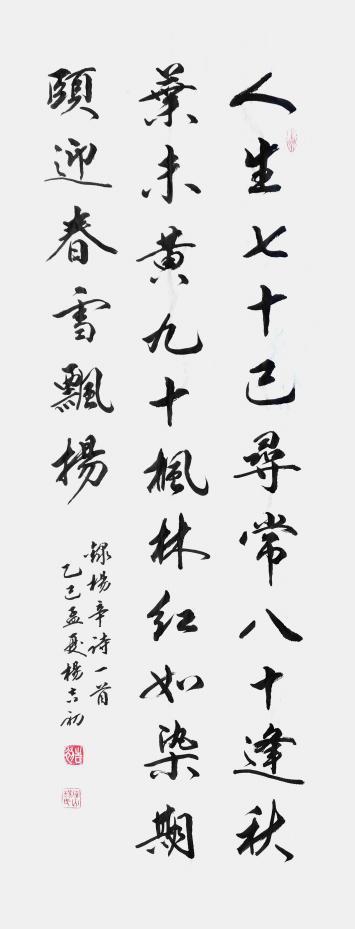 人生七十已尋常八十逢秋
葉未黄九十楓林紅如染期
頤迎春雪飄揚
録楊辛诗一首
乙巳孟夏楊吉初